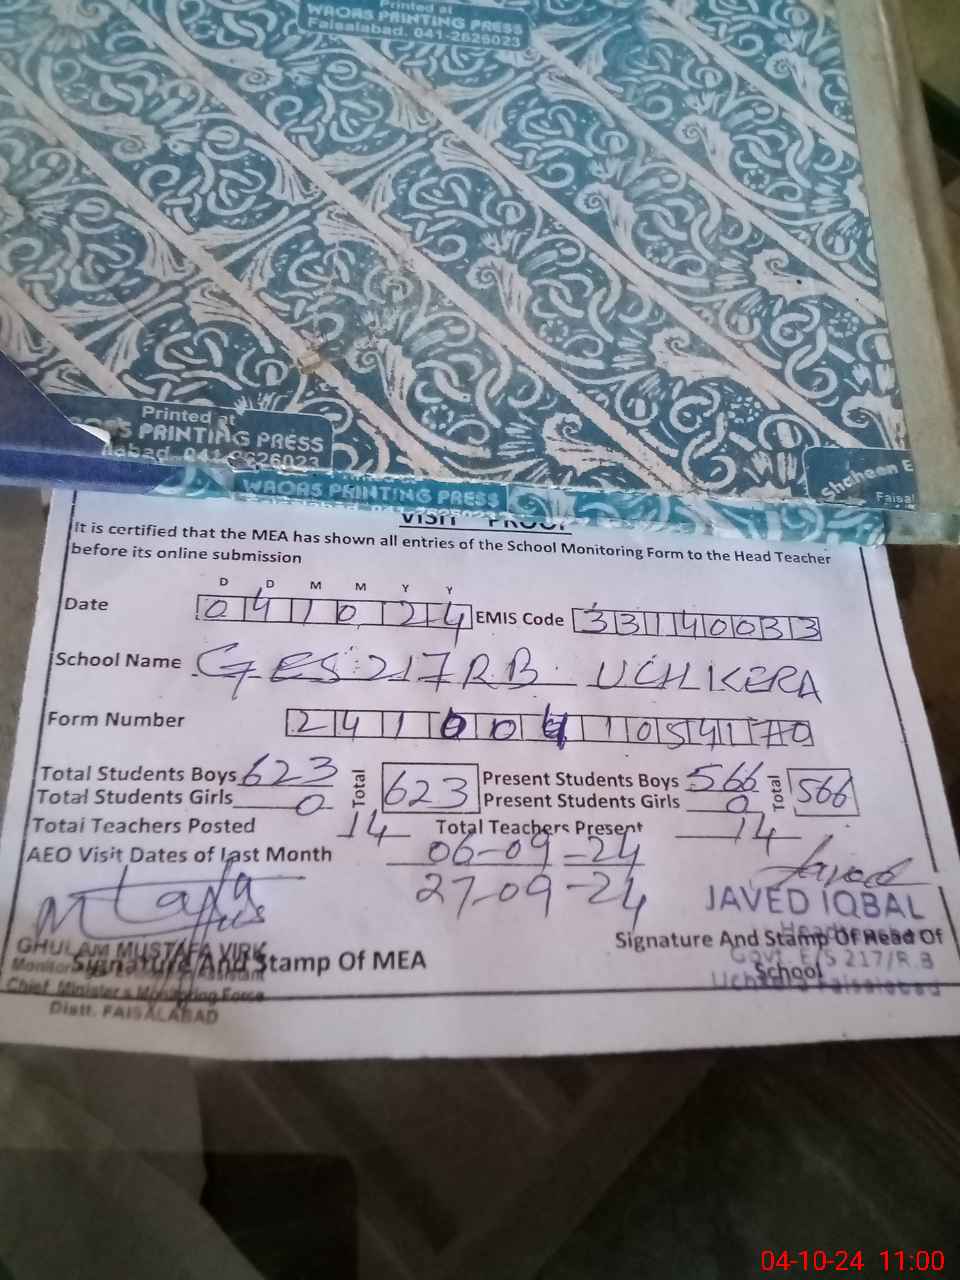 Printed at
WAQAS PRINTING PRESS
Faisalabad. 041-2626023
Printed at
PRINTING PRESS
abad. 041-2626023
Shaheen E
Faisal
WAQAS PRINTING PRESS
VISIT PROOF
It is certified that the MEA has shown all entries of the School Monitoring Form to the Head Teacher
before its online submission
D D M M Y Y
Date 0 4 1 0 2 4 EMIS Code 3 3 1 1 4 0 0 3 3
School Name GES 217 RB UCHKERA
Form Number 2 4 1 0 0 4 1 0 5 4 1 7 0
Total Students Boys 623 Total 623 Present Students Boys 566 Total 566
Total Students Girls 0 Present Students Girls 0
Total Teachers Posted 14 Total Teachers Present 14
AEO Visit Dates of Last Month 06-09-24
27-09-24
JAVED IQBAL
GHULAM MUSTAFA VIRK
Signature And Stamp Of MEA
Signature And Stamp Of Head Of
School
Govt. E/S 217/R.B
Chief Minister's Monitoring Force
Distt. FAISALABAD
04-10-24 11:00